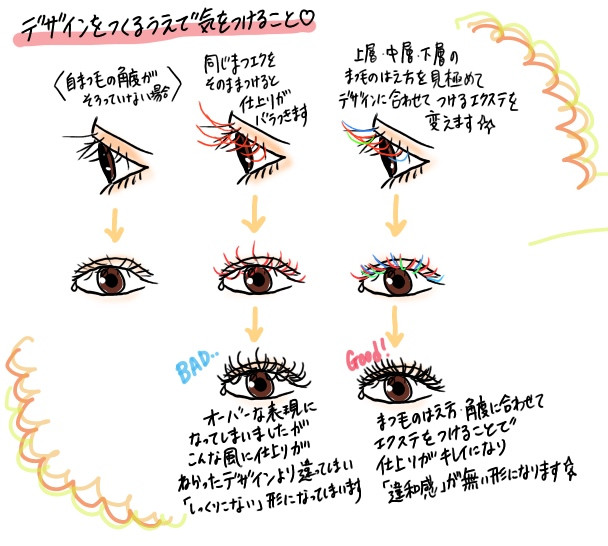 デザインをつくるうえで気をつけること♡
〈自まつ毛の角度が
そろっていけない場合〉
同じまつエクを
そのままつけると
仕上りが
バラつきます
上層・中層・下層の
まつ毛のはえ方を見極めて
デザインに合わせてつけるエクステを
変えます☆
BAD..
オーバーな表現に
なってしまいましたが
こんな風に仕上りが
ねかったデザインより違ってしまい
「しっくりこない」形になってしまいます
Good!
まつ毛のはえ方・角度に合わせて
エクステをつけることで
仕上りがキレイになり
「違和感」が無い形になります☆